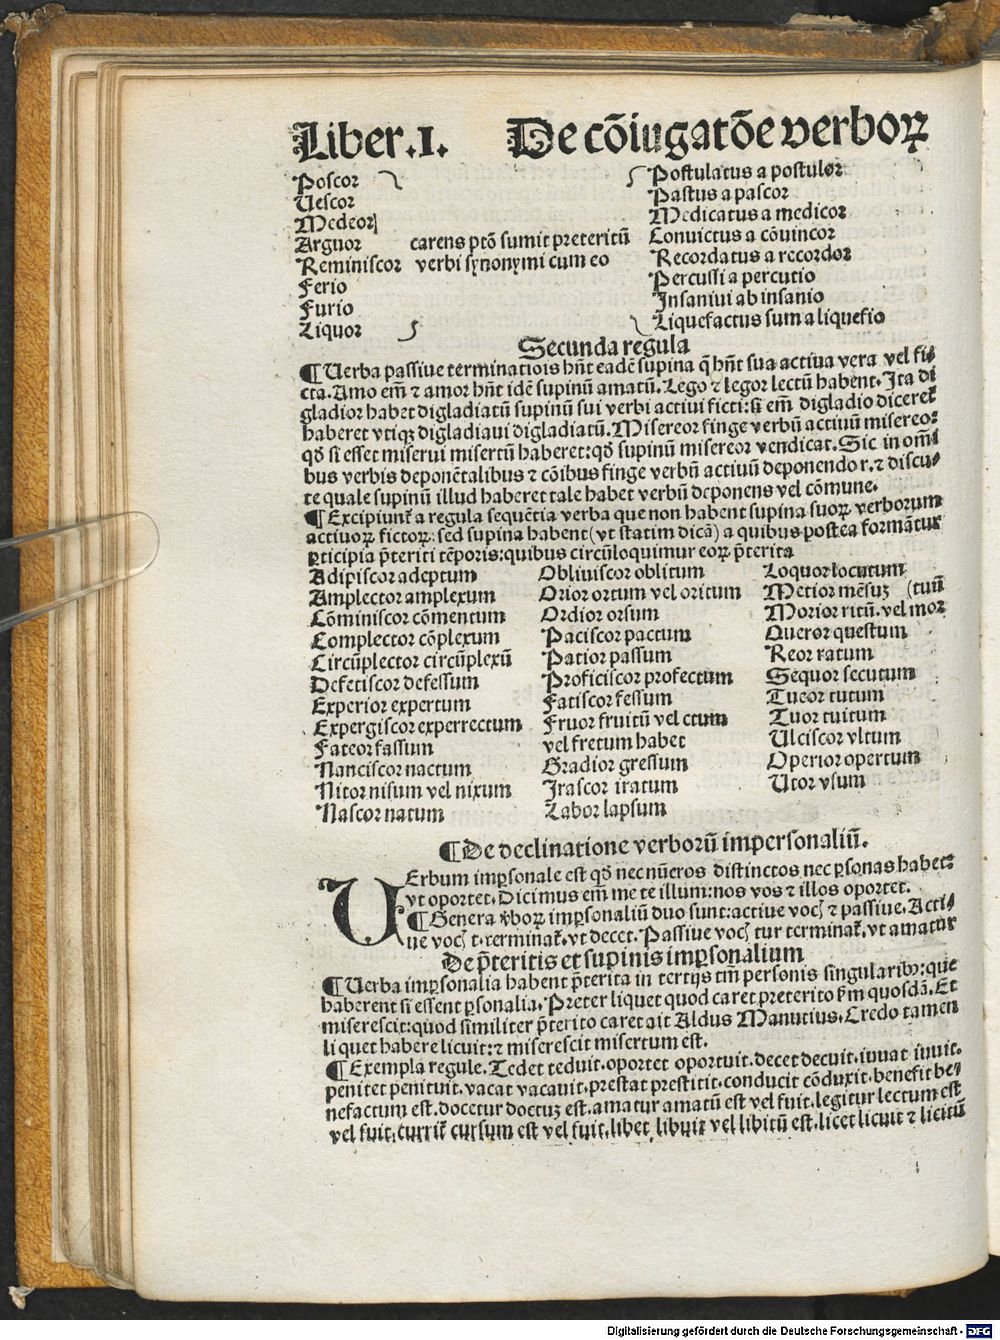 Liber .I. De cõiugatõe verboꝝ
Poscor
Vescor
Medeor
Arguor
Reminiscor
Ferio
Furio
Liquor
carens ptõ sumit preteritũ
verbi synonymi cum eo
Postulatus a postulor
Pastus a pascor
Medicatus a medicor
Conuictus a cõuincor
Recordatus a recordor
Percussi a percutio
Insaniui ab insanio
Liquefactus sum a liquefio
Secunda regula
¶ Verba passiue terminatiõis hñt eadẽ supina q̃ hñt sua actiua vera vel fi⸗
cta. Amo em̃ ⁊ amor hñt idẽ supinũ amatũ. Lego ⁊ legor lectũ habent. Ita di
gladior habet digladiatũ supinũ sui verbi actiui ficti: si em̃ digladio diceret̃
haberet vtiqꝫ digladiaui digladiatũ. Misereor finge verbũ actiuũ misereo:
qd̃ si esset miserui misertũ haberet: qd̃ supinũ misereor vendicat. Sic in om̃i
bus verbis deponẽtalibus ⁊ cõibus finge verbũ actiuũ deponendo r. ⁊ discu⸗
te quale supinũ illud haberet tale habet verbũ deponens vel cõmune.
¶ Excipiunt̃ a regula sequẽtia verba que non habent supina suoꝝ verborum
actiuoꝝ fictoꝝ: sed supina habent (vt statim dicã) a quibus postea formãtur
ꝑticipia p̃teriti tẽporis: quibus circũloquimur eoꝝ p̃terita
Adipiscor adeptum
Amplector amplexum
Cõminiscor cõmentum
Complector cõplexum
Circũplector circũplexũ
Defetiscor defessum
Experior expertum
Expergiscor experrectum
Fateor fassum
Nanciscor nactum
Nitor nisum vel nixum
Nascor natum
Obliuiscor oblitum
Orior ortum vel oritum
Ordior orsum
Paciscor pactum
Patior passum
Proficiscor profectum
Fatiscor fessum
Fruor fruitũ vel ctum
vel fretum habet
Gradior gressum
Irascor iratum
Labor lapsum
Loquor locutum
Metior mẽsuꝫ (tuũ
Morior ritũ. vel mor
Queror questum
Reor ratum
Sequor secutum
Tueor tutum
Tuor tuitum
Ulciscor vltum
Operior opertum
Utor vsum
¶ De declinatione verborũ impersonaliũ.
VErbum imꝑsonale est qd̃ nec nũeros distinctos nec ꝑsonas habet:
vt oportet. Dicimus em̃ me te illum: nos vos ⁊ illos oportet.
¶ Genera v̾boꝝ imꝑsonaliũ duo sunt: actiue voc̃ ⁊ passiue. Acti⸗
ue voc̃ t. terminat̃. vt decet. Passiue voc̃ tur terminat̃. vt amatur
De p̃teritis et supinis imꝑsonalium
¶ Verba imꝑsonalia habent p̃terita in tertijs tm̃ personis singularibꝫ: que
haberent si essent ꝑsonalia. Preter liquet quod caret preterito ẞm quosdã. Et
miserescit: quod similiter p̃terito caret ait Aldus Manutius. Credo tamen
liquet habere licuit: ⁊ miserescit misertum est.
¶ Exempla regule. Tedet teduit. oportet oportuit. decet decuit. iuuat iuuit.
penitet penituit. vacat vacauit. prestat prestitit. conducit cõduxit. benefit be⸗
nefactum est. docetur doctuꝫ est. amatur amatũ est vel fuit. legitur lectum est
vel fuit. currit̃ cursum est vel fuit. libet libuit vel libitũ est. licet licuit ⁊ licitũ
Digitalisierung gefördert durch die Deutsche Forschungsgemeinschaft - DFG